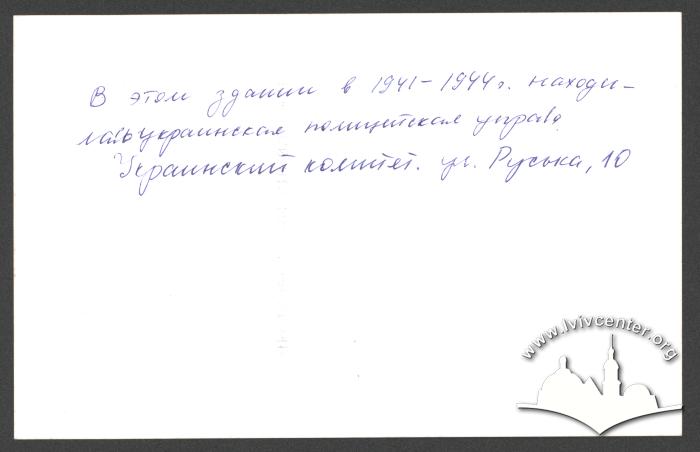 В этом здании в 1941-1944г. находи-
лась украинская полицейская управа.
Украинский комитет. ул. Руська, 10
www.lvivcenter.org